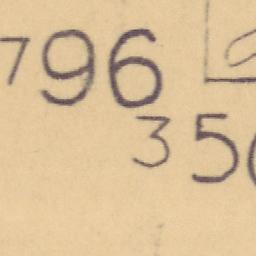 796
35